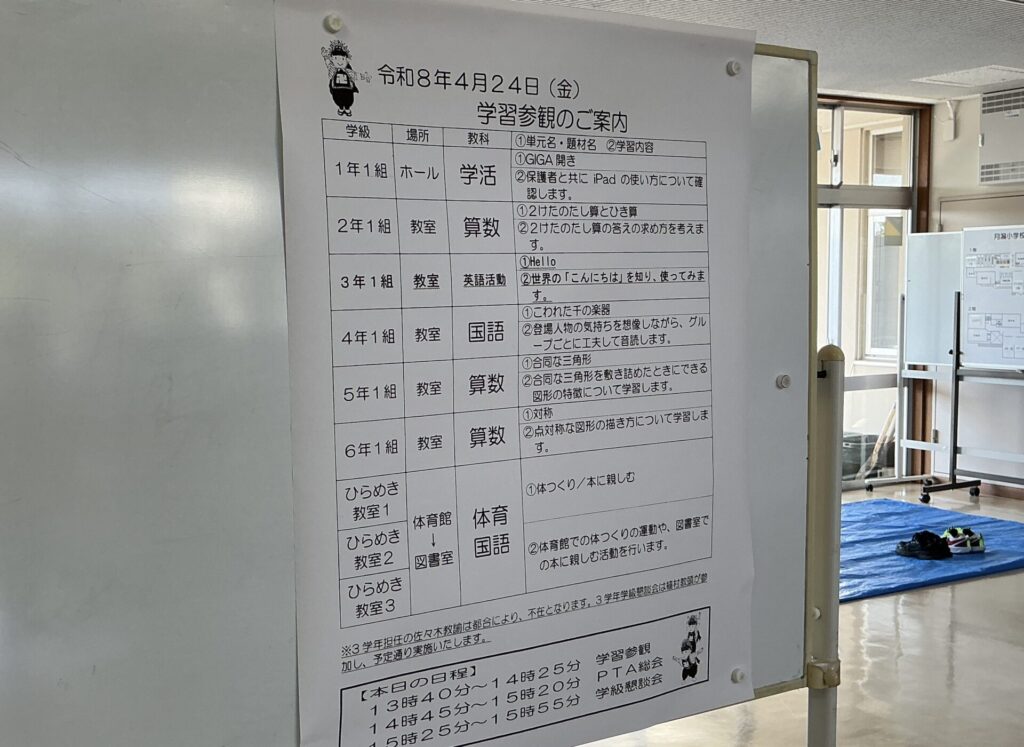 令和８年４月２４日（金）
学習参観のご案内
学級 場所 教科 ①単元名・題材名 ②学習内容
１年１組 ホール 学活 ①GIGA 開き
②保護者と共に iPad の使い方について確
認します。
２年１組 教室 算数 ①２けたのたし算とひき算
②２けたのたし算の答えの求め方を考えま
す。
３年１組 教室 英語活動 ①Hello
②世界の「こんにちは」を知り、使ってみま
す。
４年１組 教室 国語 ①こわれた千の楽器
②登場人物の気持ちを想像しながら、グル
ープごとに工夫して音読します。
５年１組 教室 算数 ①合同な三角形
②合同な三角形を敷き詰めたときにできる
図形の特徴について学習します。
６年１組 教室 算数 ①対称
②点対称な図形の描き方について学習しま
す。
ひらめき
教室１
ひらめき
教室２
ひらめき
教室３
体育館
↓
図書室
体育
国語
①体つくり／本に親しむ
②体育館での体つくりの運動や、図書室で
の本に親しむ活動を行います。
※３学年担任の佐々木教諭は都合により、不在となります。３学年学級懇談会は植村教頭が参
加し、予定通り実施いたします。
【本日の日程】
１３時４０分～１４時２５分 学習参観
１４時４５分～１５時２０分 ＰＴＡ総会
１５時２５分～１５時５５分 学級懇談会
月潟小学校